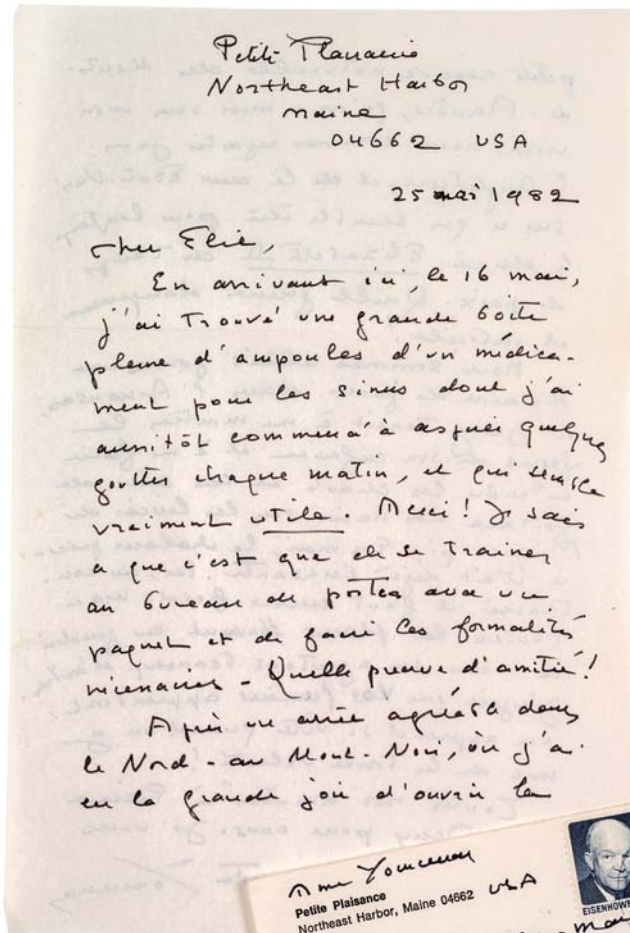 Petite Plaisance
Northeast Harbor
Maine
04662 USA
25 mai 1982
Cher Elie,
En arrivant ici, le 16 mai,
j'ai trouvé une grande boîte
pleine d'ampoules d'un médica-
ment pour les sinus dont j'ai
aussitôt commencé à aspirer quelques
gouttes chaque matin, et qui semble
vraiment utile. Merci! Je sais
ce que c'est que de se traîner
au bureau de postes avec un
paquet et de faire les formalités
nécessaires - Quelle preuve d'amitié!
Après un arrêt agréable dans
le Nord - au Mont-Noir, où j'ai
eu la grande joie d'ouvrir la
Mme Yourcenar
Petite Plaisance
Northeast Harbor, Maine 04662 USA
EISENHOWER